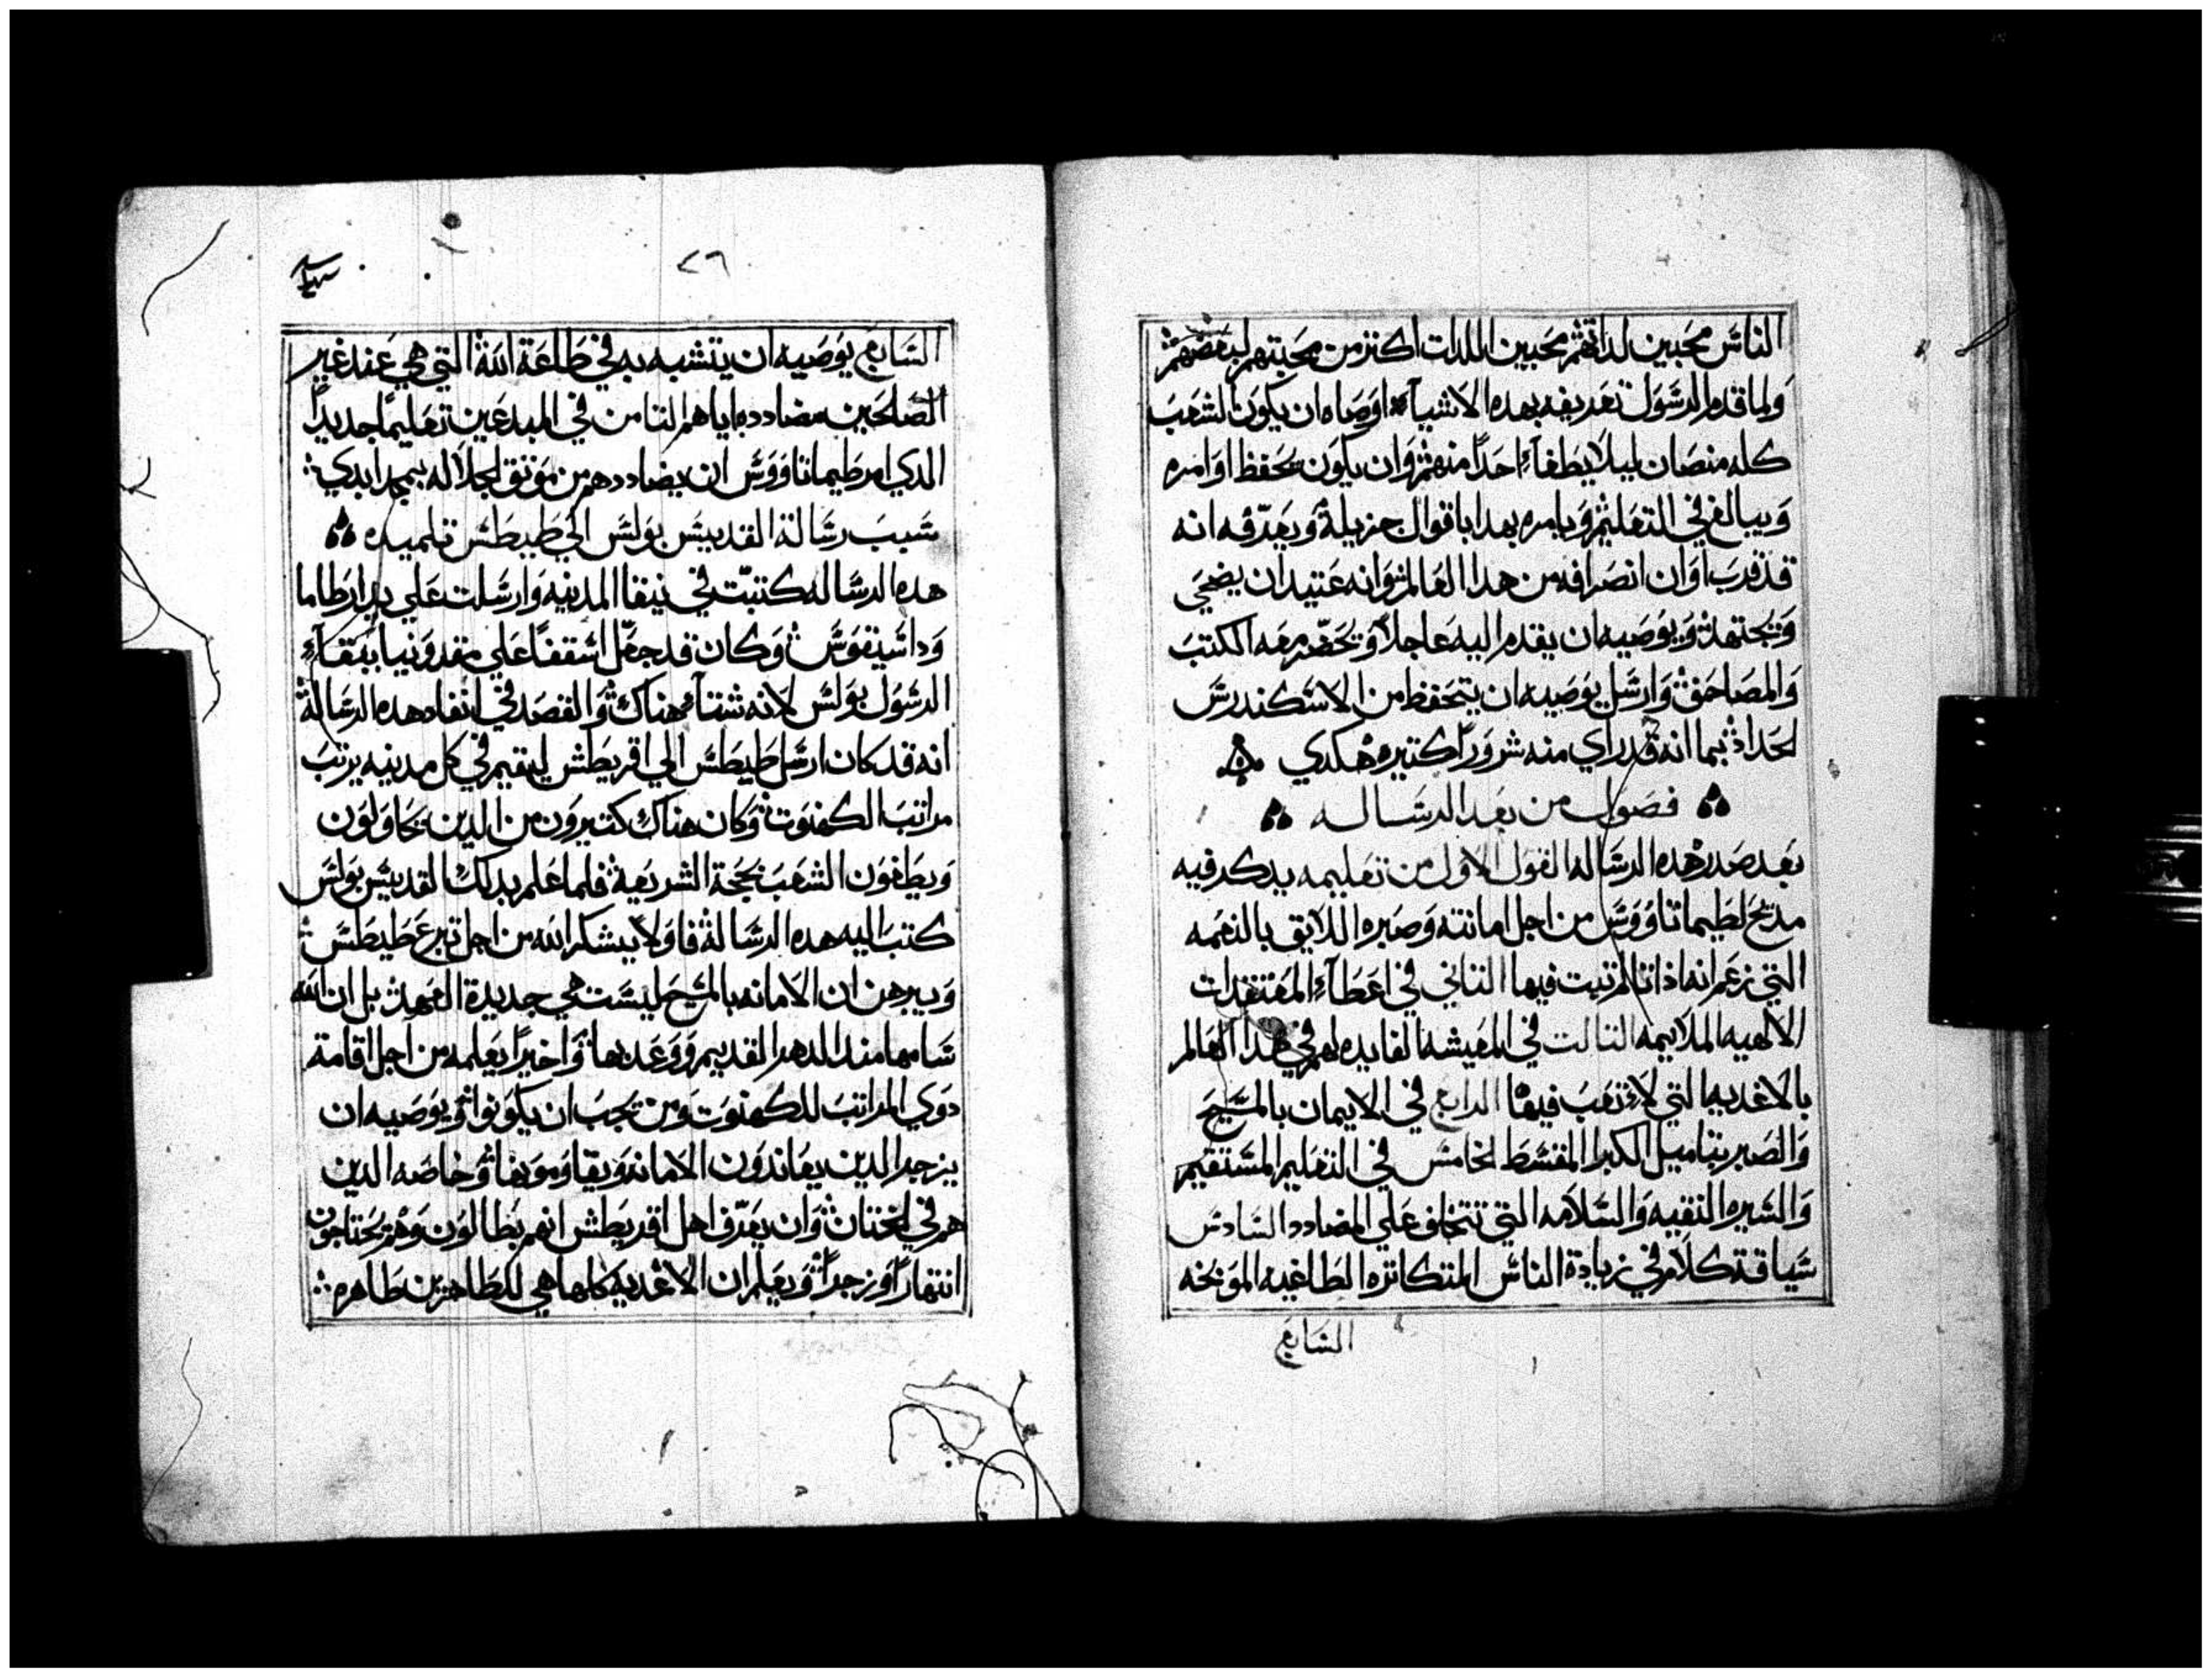 الناس محبين لداتهم محبين اللدات اكتر من محبتهم لبعضهم
ولما قدم الرسول تعريفه بهده الاشياء اوصاه ان يكون الشعب
كله منصان ليلا يطفاء احدا منهم وان يكون يحفظ اوامره
ويبالغ في التعليم ويامره بهدا باقوال جزيلة ويعرفه انه
قد قرب اوان انصرافه من هدا العالم وانه عتيد ان يضحي
ويجتهد ويوصيه ان يقدم اليه عاجلا ويحضر معه الكتب
والمصاحف وارسل يوصيه ان يتحفظ من الاسكندرس
الحداد بما انه قد راي منه شرورا كتيره هكدي
فصول من بعد الرساله
بعد صدر هده الرساله القول الاول من تعليمه يدكر فيه
مديح لطيماتاووس من اجل امانته وصبره اللايق بالنعمه
التي زعم انه اذا تالم تبت فيها التاني في اعطاء المفتقدات
الالهيه الملايمه التالت في المعيشه الفايده لهم في هدا العالم
بالاغديه التي لا تعب فيها الرابع في الايمان بالمسيح
والصبر بتاميل الكبر المقسط الخامس في التعليم المستقيم
والسيره النقيه والسلامه التي تتخلف علي المضادد السادس
سياقة كلام في زيادة الناس المتكاتره الطاغيه الموبخه
السابع
٢٦
السابع يوصيه ان يتشبه به في طاعة الله التي هي عند غير
الصالحين مضادده اياهم التامن في المبدعين تعليما جديدا
الدي امر طيماتاووس ان يضاددهم من موتق الجلاله بمجد ابدي
سبب رسالة القديس بولس الي طيطس تلميده
هده الرساله كتبت في نيقا المدنيه وارسلت علي يد ارطاما
وداسيتقوس وكان قد جعل اسقفا علي مقدونيا ببقاء
الرسول بولس لانه شتاء هناك والقصد في انفاد هده الرسالة
انه قد كان ارسل طيطس الي اقريطش ليقيم في كل مدينه يرتب
مراتب الكهنوت وكان هناك كتيرون من الدين يحاولون
ويطغون الشعب بحجة الشريعة فلما علم بدلك القديس بولس
كتب اليه هده الرسالة فاولا يشكر الله من اجل تبرع طيطس
ويبرهن ان الامانه بالمسيح ليست هي جديدة العهد بل ان الله
سامها مند الدهر القديم ووعد بها واخيرا يعلمه من اجل اقامة
دوي المراتب للكهنوت ومن يجب ان يكونوا ويوصيه ان
يزجر الدين يعاندون الامانه ويقاوموبها وخاصه الدين
هم في الختان وان يعرف اهل اقريطش انهم بطالون وهم يحتاجون
انتهارا وزجرا ويعلم ان الاغديه كلها هي للطاهرين طاهره